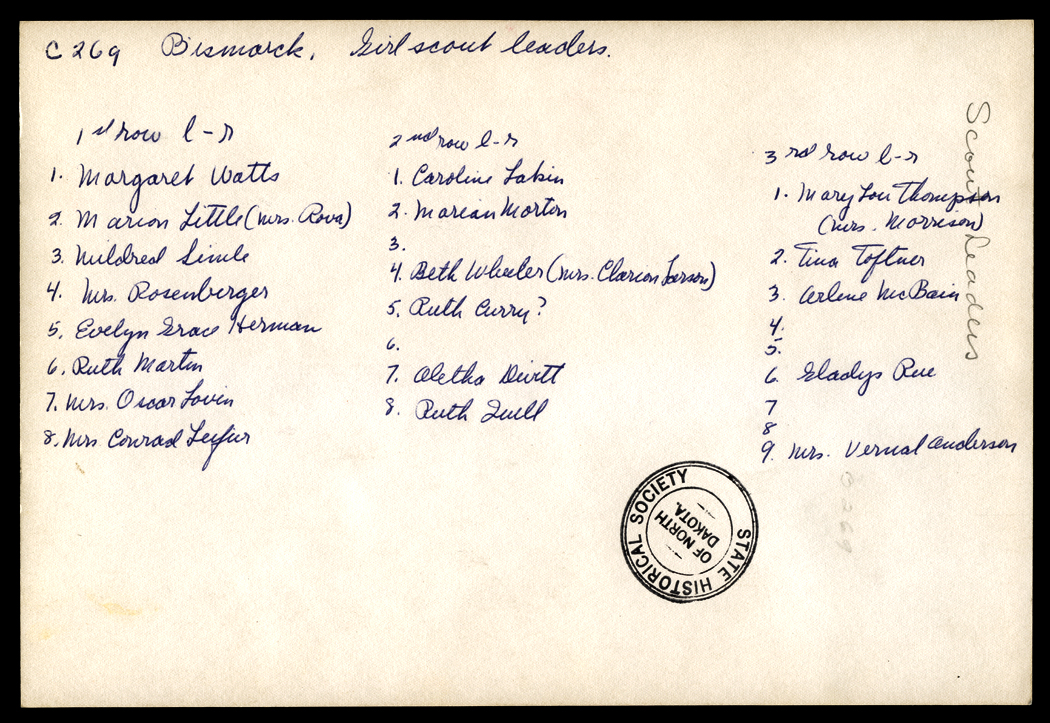 C 269 Bismarck, Girl scout leaders.
1st row l-r
1. Margaret Watts
2. Marion Little (mrs. Rova)
3. Mildred Simle
4. Mrs. Rosenberger
5. Evelyn Grace Herman
6. Ruth Martin
7. Mrs. Oscar Lovin
8. Mrs Conrad
2nd row l-r
1. Caroline Lakin
2. Marian Morton
3.
4. Beth Wheeler (mrs. Clarion Larson)
5. Ruth Curry?
6.
7. Aletha Divitt
8. Ruth
3rd row l-r
1. Mary Lou Thompson
(mrs. Morrison)
2. Tina Toftner
3. Arlene McBain
4.
5.
6. Gladys Rue
7
8
9. Mrs. Vernal Anderson
Scout Leaders
C 269
STATE HISTORICAL SOCIETY
OF NORTH
DAKOTA.